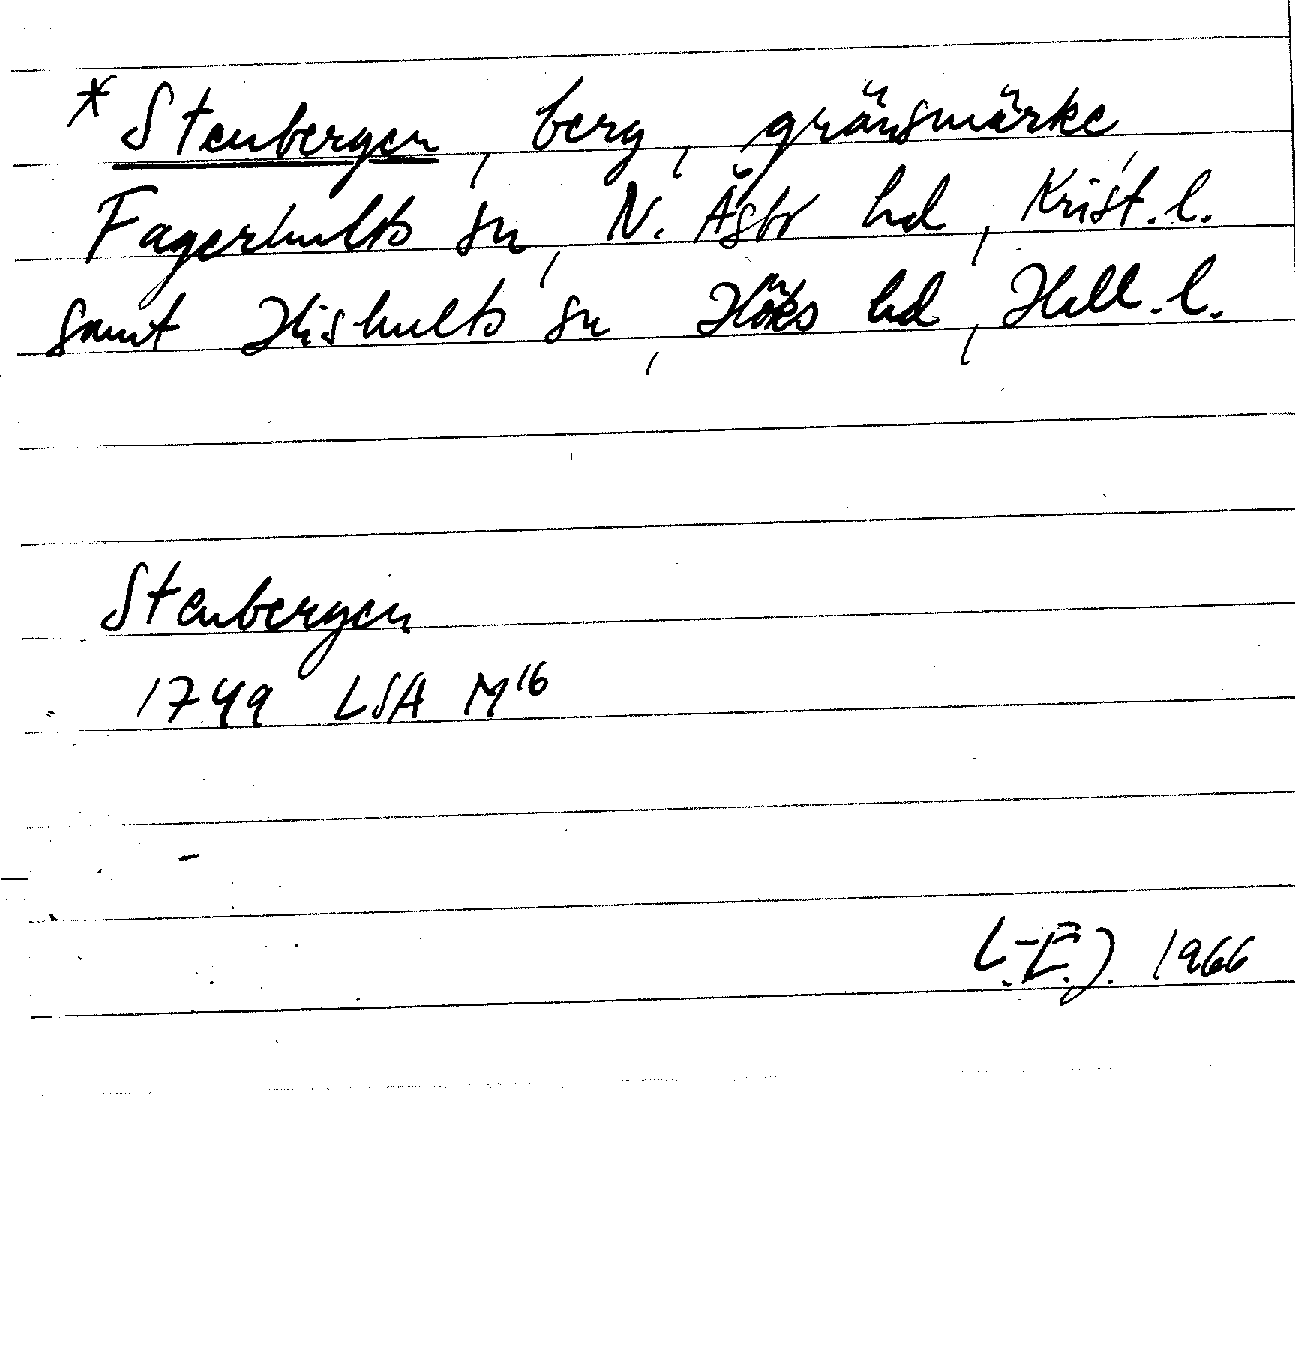 * Stenbergen, berg, gränsmärke,
Fagerhults sn, N. Åsbo hd, Krist. l.
samt Hishults sn, Höks hd, Hall. l.
Stenbergen
1749 LSA M16
L.-E.J. 1966